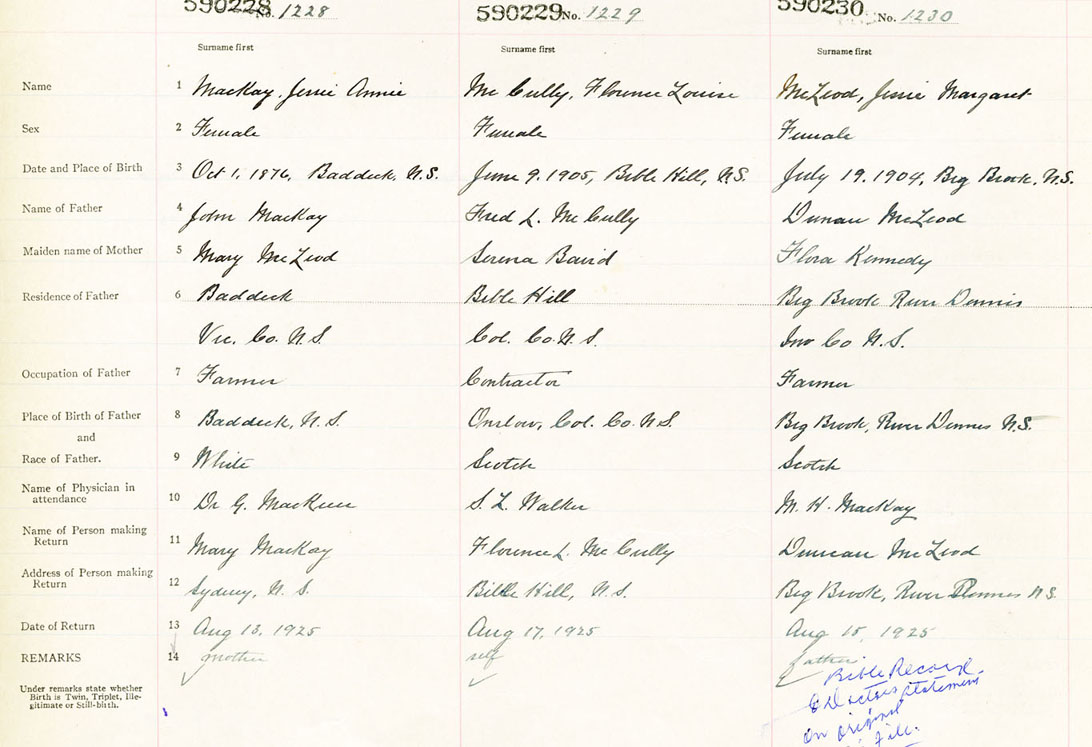 590228 No. 1228 590229 No. 1229 590230 No. 1230
Surname first Surname first Surname first
Name 1 MacKay, Jessie Annie Mc Cully, Florence Louise McLeod, Jessie Margaret
Sex 2 Female Female Female
Date and Place of Birth 3 Oct 1, 1876, Baddeck, N.S. June 9. 1905, Bible Hill, N.S. July 19. 1904, Big Brook, N.S.
Name of Father 4 John MacKay Fred L. Mc Cully Duncan McLeod
Maiden name of Mother 5 Mary McLeod Serena Baird Flora Kennedy
Residence of Father 6 Baddeck Bible Hill Big Brook River Dennis
Vic. Co. N.S. Col. Co. N.S. Inv Co N.S.
Occupation of Father 7 Farmer Contractor Farmer
Place of Birth of Father 8 Baddeck, N.S. Onslow, Col. Co. N.S. Big Brook, River Dennis N.S.
and
Race of Father. 9 White Scotch Scotch
Name of Physician in
attendance 10 Dr G. S. L. Walker M. H. MacKay
Name of Person making
Return 11 Mary MacKay Florence L. Mc Cully Duncan McLeod
Address of Person making
Return 12 Sydney, N. S. Bible Hill, N.S. Big Brook, River Dennis N S.
Date of Return 13 Aug 13, 1925 Aug 17, 1925 Aug 15, 1925
REMARKS 14 mother self father
Under remarks state whether
Birth is Twin, Triplet, Ille-
gitimate or Still-birth.
Bible Record
& Doctors statement
on original
file.